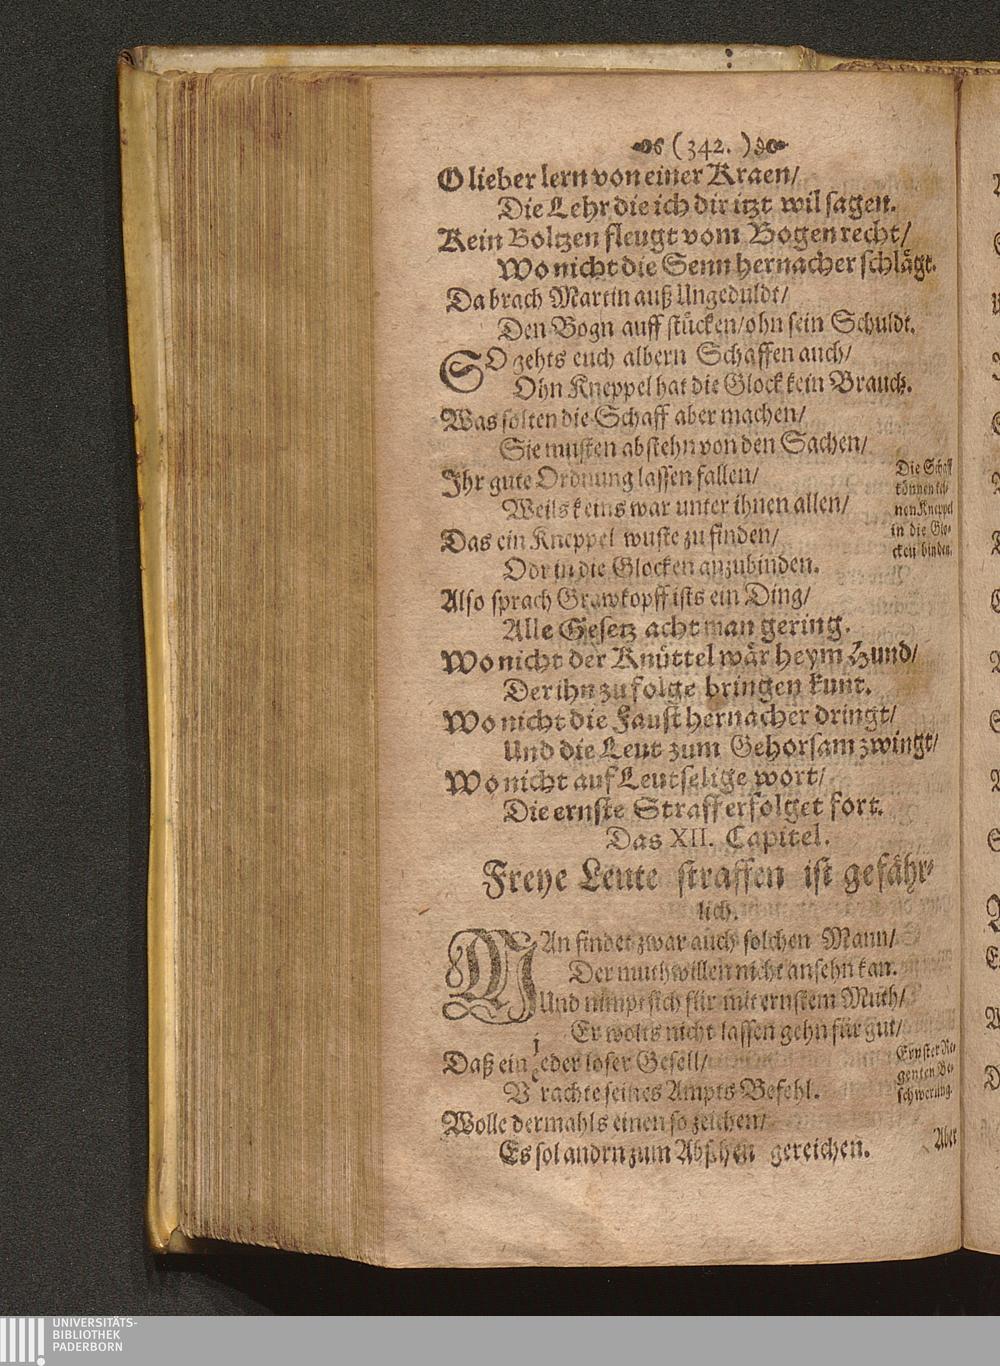 (342.)
O lieber lern von einer Kraen/
Die Lehr die ich dir itzt wil sagen.
Kein Boltzen fleugt vom Bogen recht/
Wo nicht die Senn hernacher schlägt.
Da brach Martin auß Ungeduldt/
Den Bogn auff stücken/ ohn sein Schuldt.
SO gehts euch albern Schaffen auch/
Ohn Kneppel hat die Glock kein Brauch.
Was solten die Schaff aber machen/
Sie musten abstehn von den Sachen/
Ihr gute Ordnung lassen fallen/
Weils keins war unter ihnen allen/
Das ein Kneppel wuste zu finden/
Odr in die Glocken anzubinden.
Die Schaff
können kei-
nen Kneppel
in die Glo-
cken binden.
Also sprach Grawkopff ists ein Ding/
Alle Gesetz acht man gering.
Wo nicht der Knüttel wär beym Hund/
Der ihn zu folge bringen kunt.
Wo nicht die Faust hernacher dringt/
Und die Leut zum Gehorsam zwingt/
Wo nicht auf Leutselige wort/
Die ernste Straff erfolget fort.
Das XII. Capitel.
Freye Leute straffen ist gefähr-
lich.
MAn findet zwar auch solchen Mann/
Der muthwillen nicht ansehn kan.
Und nimpt sich für mit ernstem Muth/
Er wolts nicht lassen gehn für gut/
Daß ein jeder loser Gesell/
V rachte seines Ampts Befehl.
Ernster Re-
genten Be-
schwerung.
Wolle dermahls einen so zeichen/
Es sol andrn zum Abschen gereichen.
Aber
UNIVERSITÄTS-
BIBLIOTHEK
PADERBORN